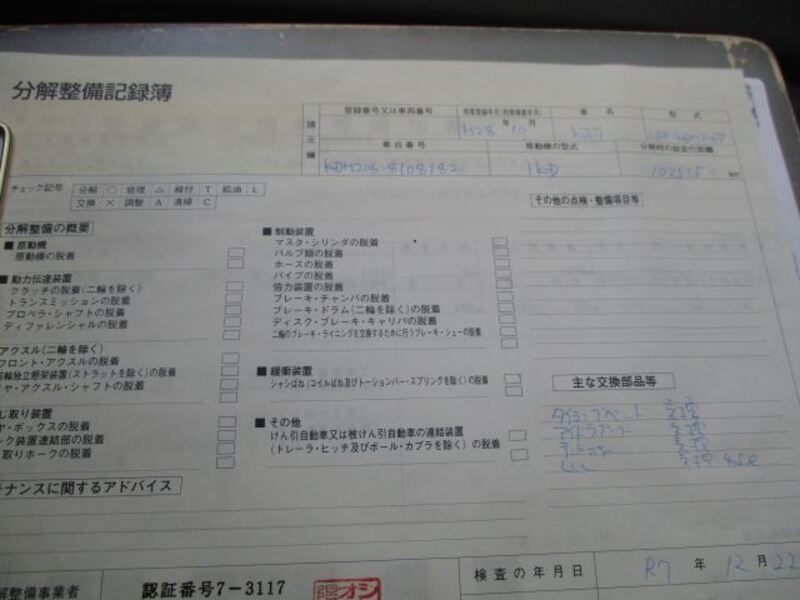 分解整備記録簿
諸元欄
登録番号又は車両番号
初度登録年月(初度検査年月)
車名
型式
H28年10月
トヨタ
車台番号
原動機の型式
分解時の総走行距離
KDH206-8108182
1KD
km
チェック記号
分解 ○ 修理 △ 締付 T 給油 L
交換 × 調整 A 清掃 C
その他の点検・整備項目等
分解整備の概要
■原動機
原動機の脱着
■動力伝達装置
クラッチの脱着(二輪を除く)
トランスミッションの脱着
プロペラ・シャフトの脱着
ディファレンシャルの脱着
アクスル(二輪を除く)
フロント・アクスルの脱着
前輪独立懸架装置(ストラットを除く)の脱着
ヤ・アクスル・シャフトの脱着
じ取り装置
ヤ・ボックスの脱着
ック装置連結部の脱着
取りホークの脱着
■制動装置
マスタ・シリンダの脱着
バルブ類の脱着
ホースの脱着
パイプの脱着
倍力装置の脱着
ブレーキ・チャンバの脱着
ブレーキ・ドラム(二輪を除く)の脱着
ディスク・ブレーキ・キャリパの脱着
二輪のブレーキ・ライニングを交換するために行うブレーキ・シューの脱着
■緩衝装置
シャシばね(コイルばね及びトーションバー・スプリングを除く)の脱着
■その他
けん引自動車又は被けん引自動車の連結装置
(トレーラ・ヒッチ及びボール・カプラを除く)の脱着
主な交換部品等
タイミングベルト 交換
アイドラプーリー 交換
テンショナー 交換
LLC 交換
ナンスに関するアドバイス
解整備事業者
認証番号7-3117
検査の年月日
R7年12月22